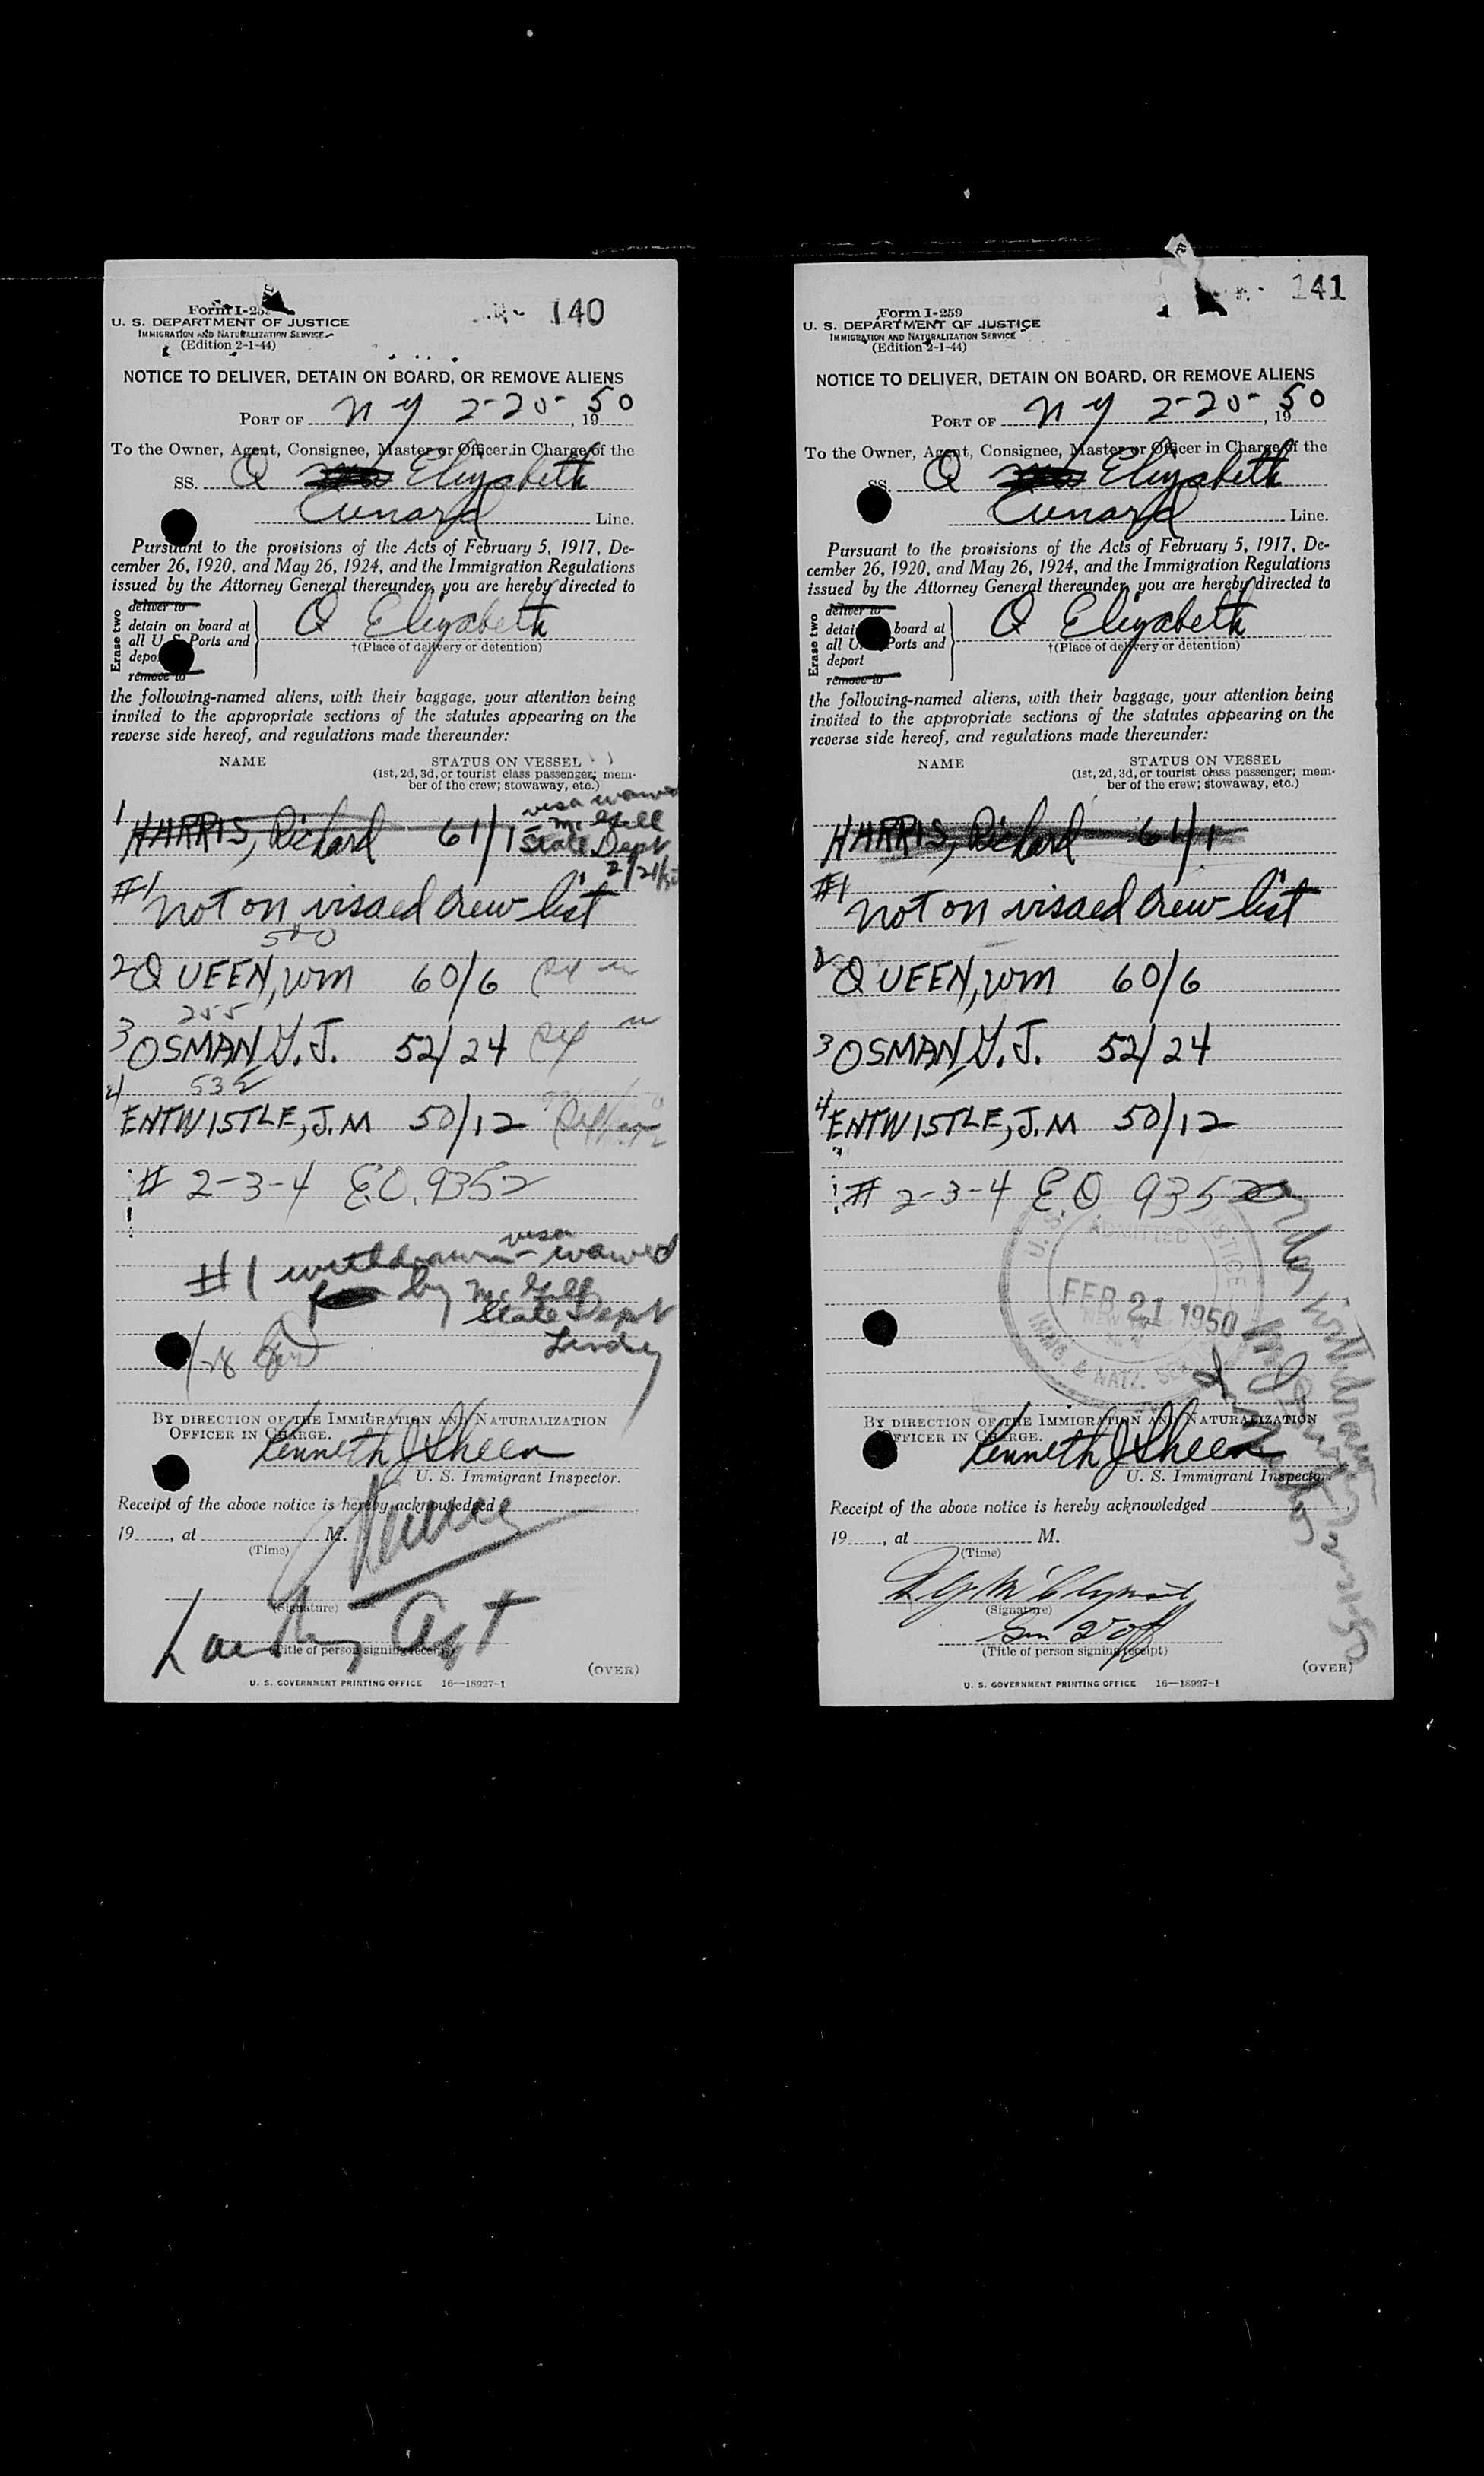 140
Form I-259
U. S. DEPARTMENT OF JUSTICE
IMMIGRATION AND NATURALIZATION SERVICE
(Edition 2-1-44)
NOTICE TO DELIVER, DETAIN ON BOARD, OR REMOVE ALIENS
PORT OF N Y 2-20-, 1950
To the Owner, Agent, Consignee, Master or Officer in Charge of the
SS. Q Elizabeth
Cunard Line.
Pursuant to the provisions of the Acts of February 5, 1917, De-
cember 26, 1920, and May 26, 1924, and the Immigration Regulations
issued by the Attorney General thereunder, you are hereby directed to
Erase two
deliver to
detain on board at
all U. S. Ports and
deport
remove to
Q Elizabeth
†(Place of delivery or detention)
the following-named aliens, with their baggage, your attention being
invited to the appropriate sections of the statutes appearing on the
reverse side hereof, and regulations made thereunder:
NAME STATUS ON VESSEL
(1st, 2d, 3d, or tourist class passenger; mem-
ber of the crew; stowaway, etc.)
visa waived
1 HARRIS, Richard 61/1 - McGill
State Dept
2/21/50
#1 Not on visaed crew list
500
2 QUEEN, Wm 60/6
255
3 OSMAN, G. J. 52/24
535
4 ENTWISTLE, J. M 50/12
# 2-3-4 E.O. 9352
#1 withdrawn - visa waived
by McGill
State Dept
BY DIRECTION OF THE IMMIGRATION AND NATURALIZATION
OFFICER IN CHARGE.
Kenneth J Sheen
U. S. Immigrant Inspector.
Receipt of the above notice is hereby acknowledged
19, at M.
(Time)
(Signature)
Landing Agt
(Title of person signing receipt)
(OVER)
U. S. GOVERNMENT PRINTING OFFICE 16—18927-1
141
Form I-259
U. S. DEPARTMENT OF JUSTICE
IMMIGRATION AND NATURALIZATION SERVICE
(Edition 2-1-44)
NOTICE TO DELIVER, DETAIN ON BOARD, OR REMOVE ALIENS
PORT OF N Y 2-20-, 1950
To the Owner, Agent, Consignee, Master or Officer in Charge of the
SS. Q Elizabeth
Cunard Line.
Pursuant to the provisions of the Acts of February 5, 1917, De-
cember 26, 1920, and May 26, 1924, and the Immigration Regulations
issued by the Attorney General thereunder, you are hereby directed to
Erase two
deliver to
detain on board at
all U. S. Ports and
deport
remove to
Q Elizabeth
†(Place of delivery or detention)
the following-named aliens, with their baggage, your attention being
invited to the appropriate sections of the statutes appearing on the
reverse side hereof, and regulations made thereunder:
NAME STATUS ON VESSEL
(1st, 2d, 3d, or tourist class passenger; mem-
ber of the crew; stowaway, etc.)
HARRIS, Richard 61/1
#1 Not on visaed crew list
2 QUEEN, Wm 60/6
3 OSMAN, G. J. 52/24
4 ENTWISTLE, J. M 50/12
# 2-3-4 E.O. 9352
ADMITTED
FEB 21 1950
IMMIG & NATZ.
BY DIRECTION OF THE IMMIGRATION AND NATURALIZATION
OFFICER IN CHARGE.
Kenneth J Sheen
U. S. Immigrant Inspector.
Receipt of the above notice is hereby acknowledged
19, at M.
(Time)
(Signature)
(Title of person signing receipt)
(OVER)
U. S. GOVERNMENT PRINTING OFFICE 16—18927-1